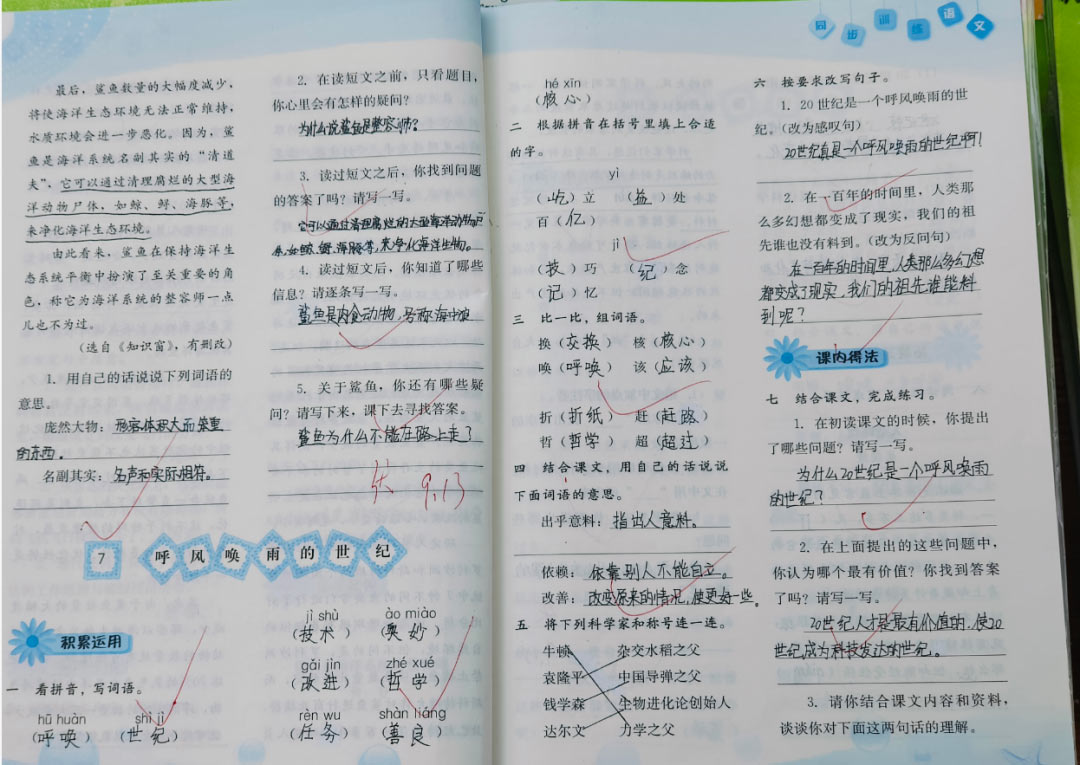 最后，鲨鱼数量的大幅度减少，
将使海洋生态环境无法正常维持，
水质环境会进一步恶化。因为，鲨
鱼是海洋系统名副其实的“清道
夫”，它可以通过清理腐烂的大型海
洋动物尸体，如鲸、鲟、海豚等，
来净化海洋生态环境。
由此看来，鲨鱼在保持海洋生
态系统平衡中扮演了至关重要的角
色，称它为海洋系统的整容师一点
儿也不为过。
（选自《知识窗》，有删改）
1. 用自己的话说说下列词语的
意思。
庞然大物：形容体积大而笨重
的东西。
名副其实：名声和实际相符。
7 呼风唤雨的世纪
积累运用
一 看拼音，写词语。
hū huàn shì jì
（呼唤）（世纪）
2. 在读短文之前，只看题目，
你心里会有怎样的疑问？
为什么说鲨鱼是整容师？
3. 读过短文之后，你找到问题
的答案了吗？请写一写。
它可以通过清理腐烂的大型海洋动物尸
体，如鲸、鲟、海豚等，来净化海洋生物。
4. 读过短文后，你知道了哪些
信息？请逐条写一写。
鲨鱼是肉食动物，号称海中狼
5. 关于鲨鱼，你还有哪些疑
问？请写下来，课下去寻找答案。
鲨鱼为什么不能在路上走了
9.13
jì shù ào miào
（技术）（奥妙）
gǎi jìn zhé xué
（改进）（哲学）
rèn wu shàn liáng
（任务）（善良）
同步训练语文
hé xīn
（核心）
二 根据拼音在括号里填上合适
的字。
yì
（屹）立 （益）处
百（亿）
jì
（技）巧 （纪）念
（记）忆
三 比一比，组词语。
换（交换） 核（核心）
唤（呼唤） 该（应该）
折（折纸） 赶（赶路）
哲（哲学） 超（超过）
四 结合课文，用自己的话说说
下面词语的意思。
出乎意料：指出人意料。
依赖：依靠别人不能自立。
改善：改变原来的情况，使更好一些。
五 将下列科学家和称号连一连。
牛顿 杂交水稻之父
袁隆平 中国导弹之父
钱学森 生物进化论创始人
达尔文 力学之父
六 按要求改写句子。
1. 20世纪是一个呼风唤雨的世
纪。（改为感叹句）
20世纪真是一个呼风唤雨的世纪啊！
2. 在一百年的时间里，人类那
么多幻想都变成了现实，我们的祖
先谁也没有料到。（改为反问句）
在一百年的时间里，人类那么多幻想
都变成了现实，我们的祖先谁能料
到呢？
课内得法
七 结合课文，完成练习。
1. 在初读课文的时候，你提出
了哪些问题？请写一写。
为什么20世纪是一个呼风唤雨
的世纪？
2. 在上面提出的这些问题中，
你认为哪个最有价值？你找到答案
了吗？请写一写。
20世纪人才是最有价值的，使20
世纪成为科技发达的世纪。
3. 请你结合课文内容和资料，
谈谈你对下面这两句话的理解。